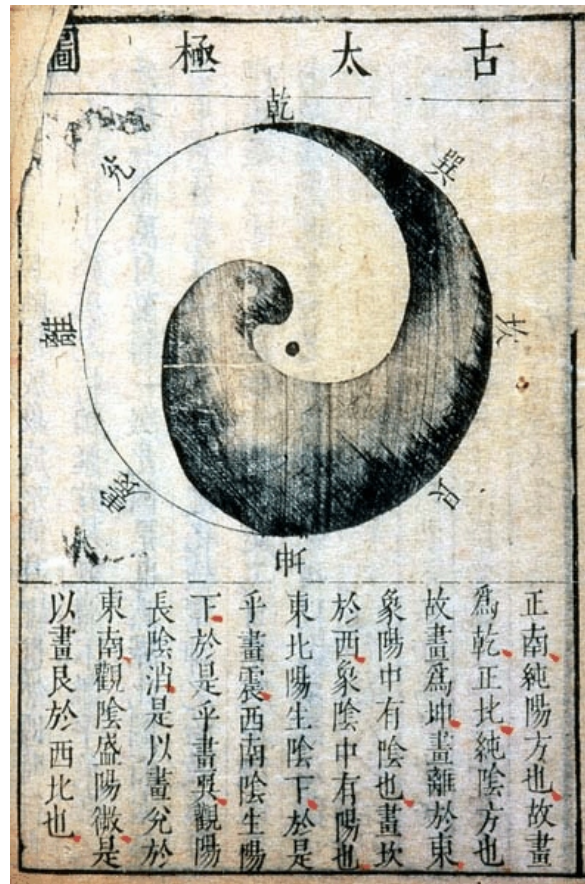 古太極圖
乾
巽
坎
艮
坤
震
離
兌
正南純陽方也故畫
爲乾正北純陰方也
故畫爲坤畫離於東
象陽中有陰也畫坎
於西象陰中有陽也
東北陽生陰下於是
乎畫震西南陰生陽
下於是乎畫巽觀陽
長陰消是以畫兌於
東南觀陰盛陽微是
以畫艮於西北也